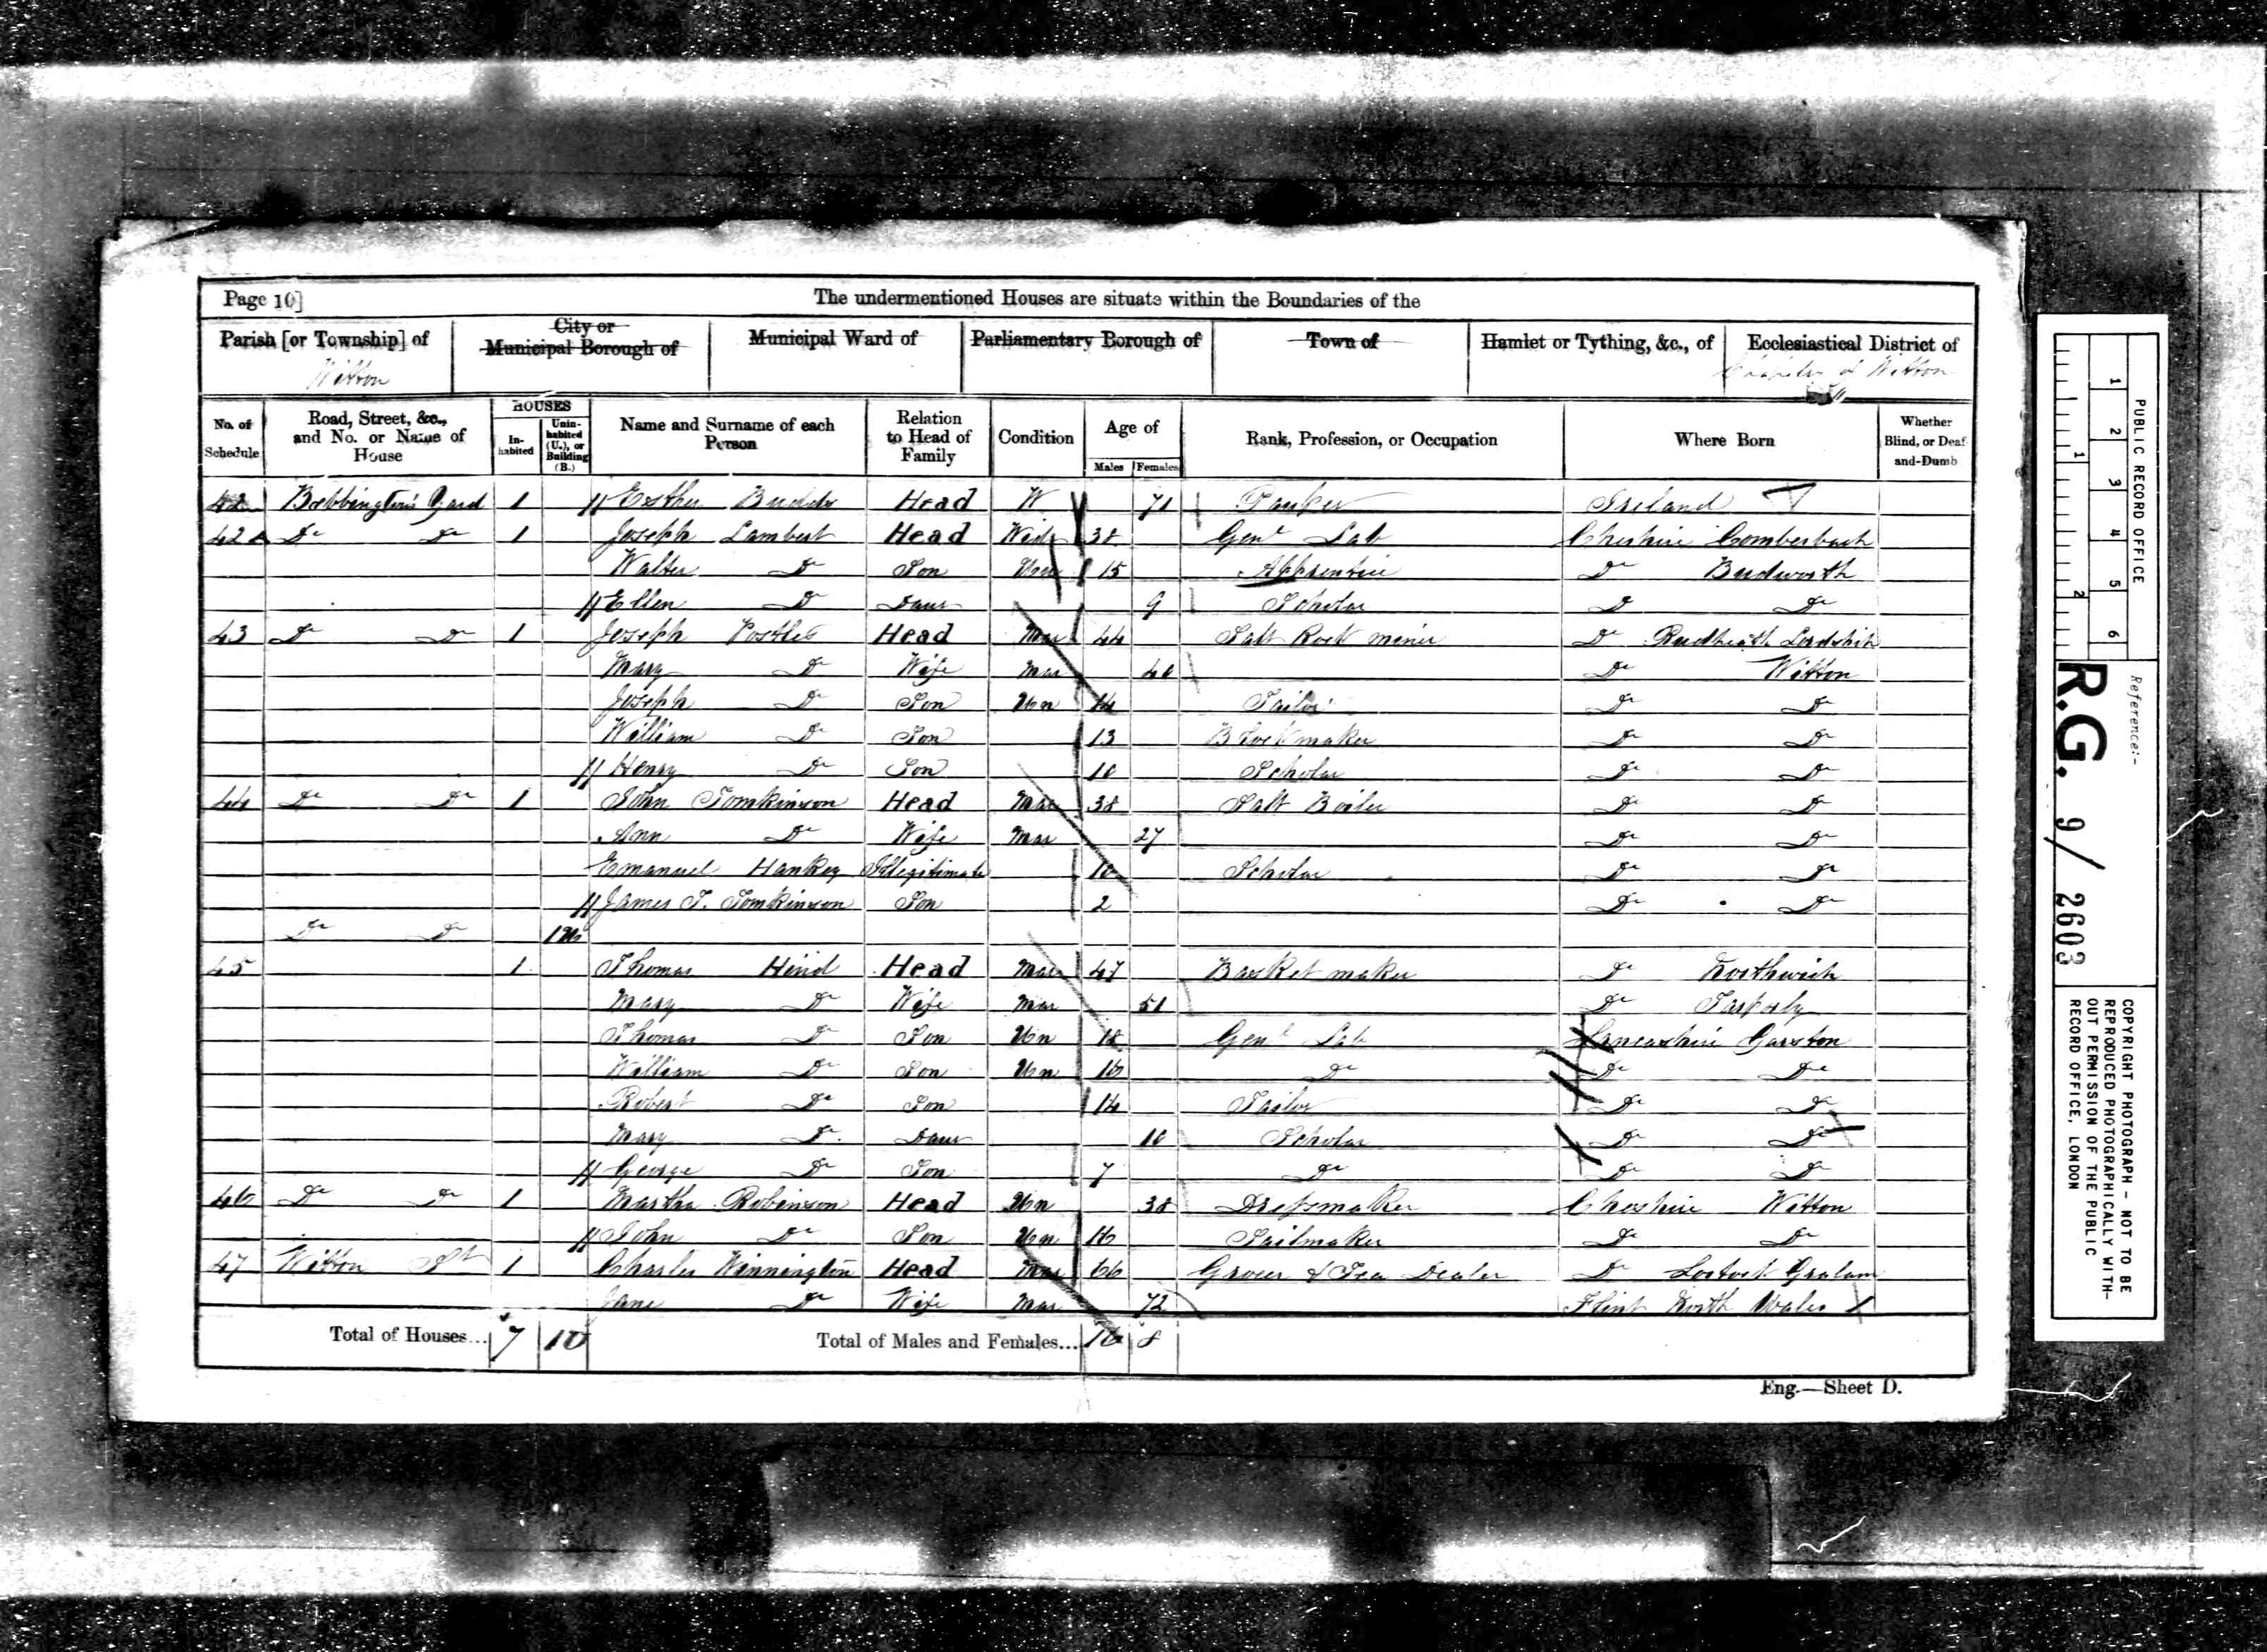 Page 10]
The undermentioned Houses are situate within the Boundaries of the
Parish [or Township] of
City or Municipal Borough of
Municipal Ward of
Parliamentary Borough of
Town of
Hamlet or Tything, &c., of
Ecclesiastical District of
Witton
of Witton
No. of Schedule
Road, Street, &c., and No. or Name of House
HOUSES
In-habited
Unin-habited (U.), or Building (B.)
Name and Surname of each Person
Relation to Head of Family
Condition
Age of
Males
Females
Rank, Profession, or Occupation
Where Born
Whether Blind, or Deaf-and-Dumb
42 Bebbington's Yard 1 Esther Head W 71 Ireland
42a Do Do 1 Joseph Lambert Head Widr 38 Genl Lab Cheshire Comberbach
Walter Do Son Un 15 Apprentice Do Budworth
Ellen Do Daur 9 Scholar Do Do
43 Do Do 1 Joseph Postles Head Mar 44 Salt Rock miner Do Rudheath Lordship
Mary Do Wife Mar 40 Do Witton
Joseph Do Son Un 14 Tailor Do Do
William Do Son 13 maker Do Do
Henry Do Son 10 Scholar Do Do
44 Do Do 1 John Tomkinson Head Mar 38 Salt Boiler Do Do
Ann Do Wife Mar 27 Do Do
Emanuel Hankey Illegitimate 10 Scholar Do Do
James T. Tomkinson Son 2 Do Do
Do Do
45 1 Thomas Hind Head Mar 47 Basket maker Do Northwich
Mary Do Wife Mar 51 Do Tarporly
Thomas Do Son Un 18 Genl Lab Lancashire Garston
William Do Son Un 16 Do Do Do
Robert Do Son 14 Tailor Do Do
Mary Do Daur 10 Scholar Do Do
George Do Son 7 Do Do Do
46 Do Do 1 Martha Robinson Head Un 38 Dressmaker Cheshire Witton
John Do Son Un 16 Sailmaker Do Do
47 Witton St 1 Charles Winnington Head Mar 66 Grocer & Tea Dealer Do Lostock Gralam
Jane Do Wife Mar 72 Flint North Wales
Total of Houses... 7
Total of Males and Females... 16 8
Eng.—Sheet D.
PUBLIC RECORD OFFICE
1 2 3 4 5 6
1 2
Reference:-
R.G. 9/ 2603
COPYRIGHT PHOTOGRAPH – NOT TO BE
REPRODUCED PHOTOGRAPHICALLY WITH-
OUT PERMISSION OF THE PUBLIC
RECORD OFFICE, LONDON